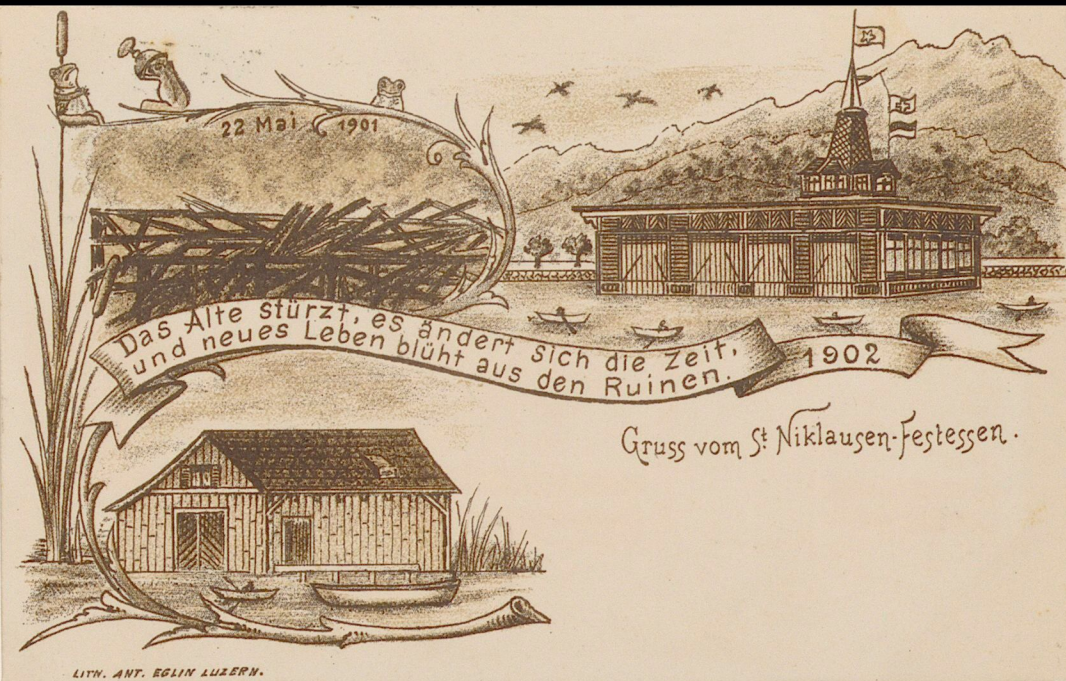 22 Mai 1901
Das Alte stürzt, es ändert sich die Zeit,
und neues Leben blüht aus den Ruinen.
1902
Gruss vom St Niklausen-Festessen.
LITH. ANT. EGLIN LUZERN.